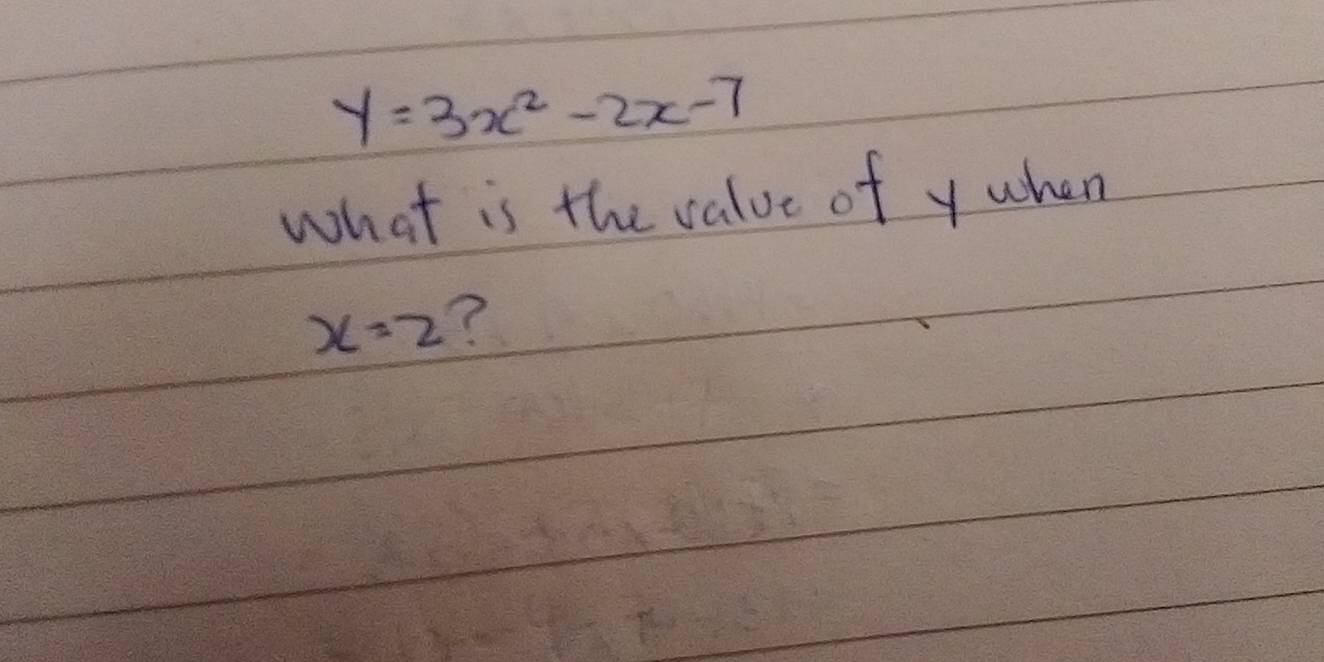 y = 3x² - 2x - 7
what is the value of y when
x = 2?